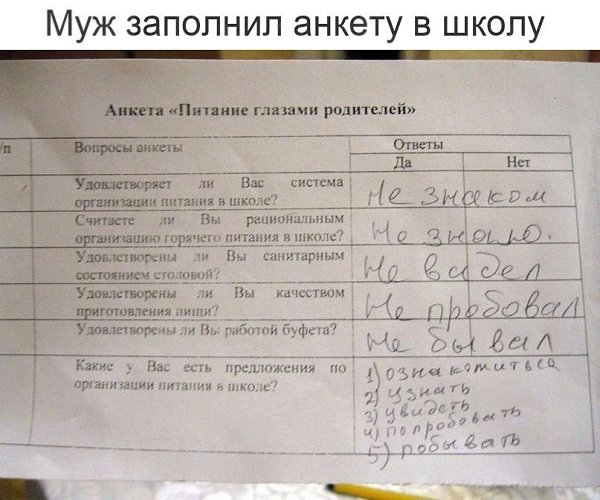 Муж заполнил анкету в школу
Анкета «Питание глазами родителей»
/п Вопросы анкеты Ответы
Да Нет
Удовлетворяет ли Вас система
организации питания в школе?
Не знаком
Считаете ли Вы рациональным
организацию горячего питания в школе?
Не знаю.
Удовлетворены ли Вы санитарным
состоянием столовой?
Не видел
Удовлетворены ли Вы качеством
приготовления пищи?
Не пробовал
Удовлетворены ли Вы работой буфета?
Не бывал
Какие у Вас есть предложения по
организации питания в школе?
1) ознакомиться
2) узнать
3) увидеть
4) попробовать
5) побывать